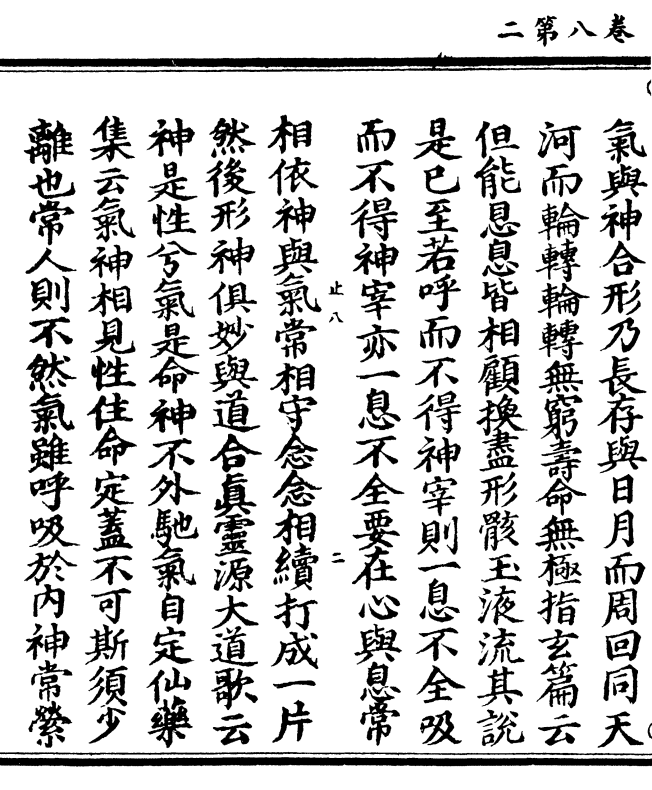 二第八卷
氣與神合形乃長存與日月而周回同天
河而輪轉輪轉無窮壽命無極指玄篇云
但能息息皆相顧換盡形骸玉液流其說
是已至若呼而不得神宰則一息不全吸
而不得神宰亦一息不全要在心與息常
止八
二
相依神與氣常相守念念相續打成一片
然後形神俱妙與道合眞靈源大道歌云
神是性兮氣是命神不外馳氣自定仙藥
集云氣神相見性住命定蓋不可斯須少
離也常人則不然氣雖呼吸於內神常縈